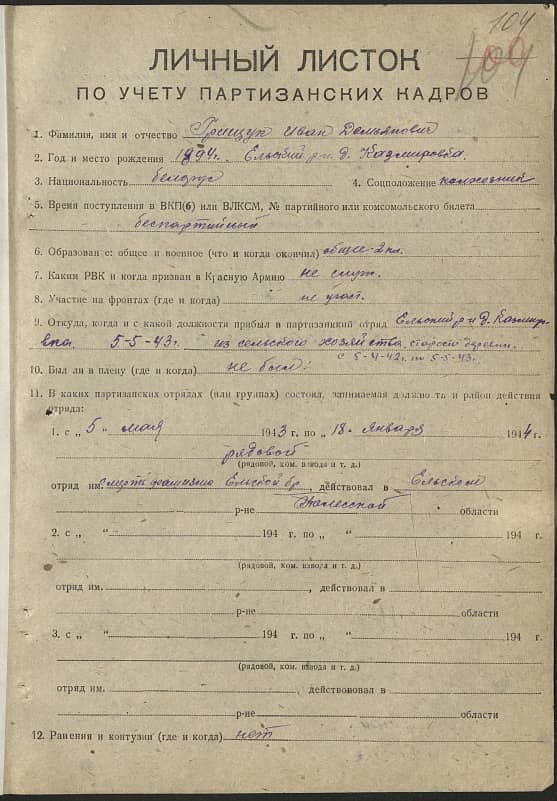 104
ЛИЧНЫЙ ЛИСТОК
ПО УЧЕТУ ПАРТИЗАНСКИХ КАДРОВ
1. Фамилия, имя и отчество Грищук Иван Демьянович
2. Год и место рождения 1894г. Ельский р-н д. Казимировка.
3. Национальность белорус 4. Соцположение колхозник
5. Время поступления в ВКП(б) или ВЛКСМ, № партийного или комсомольского билета
беспартийный
6. Образование: общее и военное (что и когда окончил) общее-2кл.
7. Каким РВК и когда призван в Красную Армию не служ.
8. Участие на фронтах (где и когда) не участ.
9. Откуда, когда и с какой должности прибыл в партизанкий отряд Ельский р-н д. Казимир-
вка. 5-5-43г. из сельского хозяйства, староста деревни.
с 5-4-42г. по 5-5-43.
10. Был ли в плену (где и когда) не был.
11. В каких партизанских отрядах (или группах) состоял, занимаемая должность и район действия
отряда:
1. с „ 5 „ мая 1943 г. по „ 18 „ января 1944 г.
рядовой
(рядовой, ком. взвода и т. д.)
отряд им. Смерть фашизма Ельской бр., действовал в Ельском
р-не Полесской области
2. с „ “ 194 г. по „ “ 194 г.
(рядовой, ком. взвода и т. д.)
отряд им. , действовал в
р-не области
3. с „ “ 194 г. по „ “ 194 г.
(рядовой, ком. взвода и т. д.)
отряд им. , действовал в
р-не области
12. Ранения и контузии (где и когда) нет